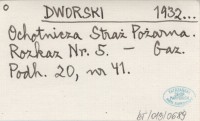 DWORSKI 1932...
Ochotnicza Straż Pożarna.
Rozkaz Nr. 5. — Gaz.
Podh. 20, nr 41.